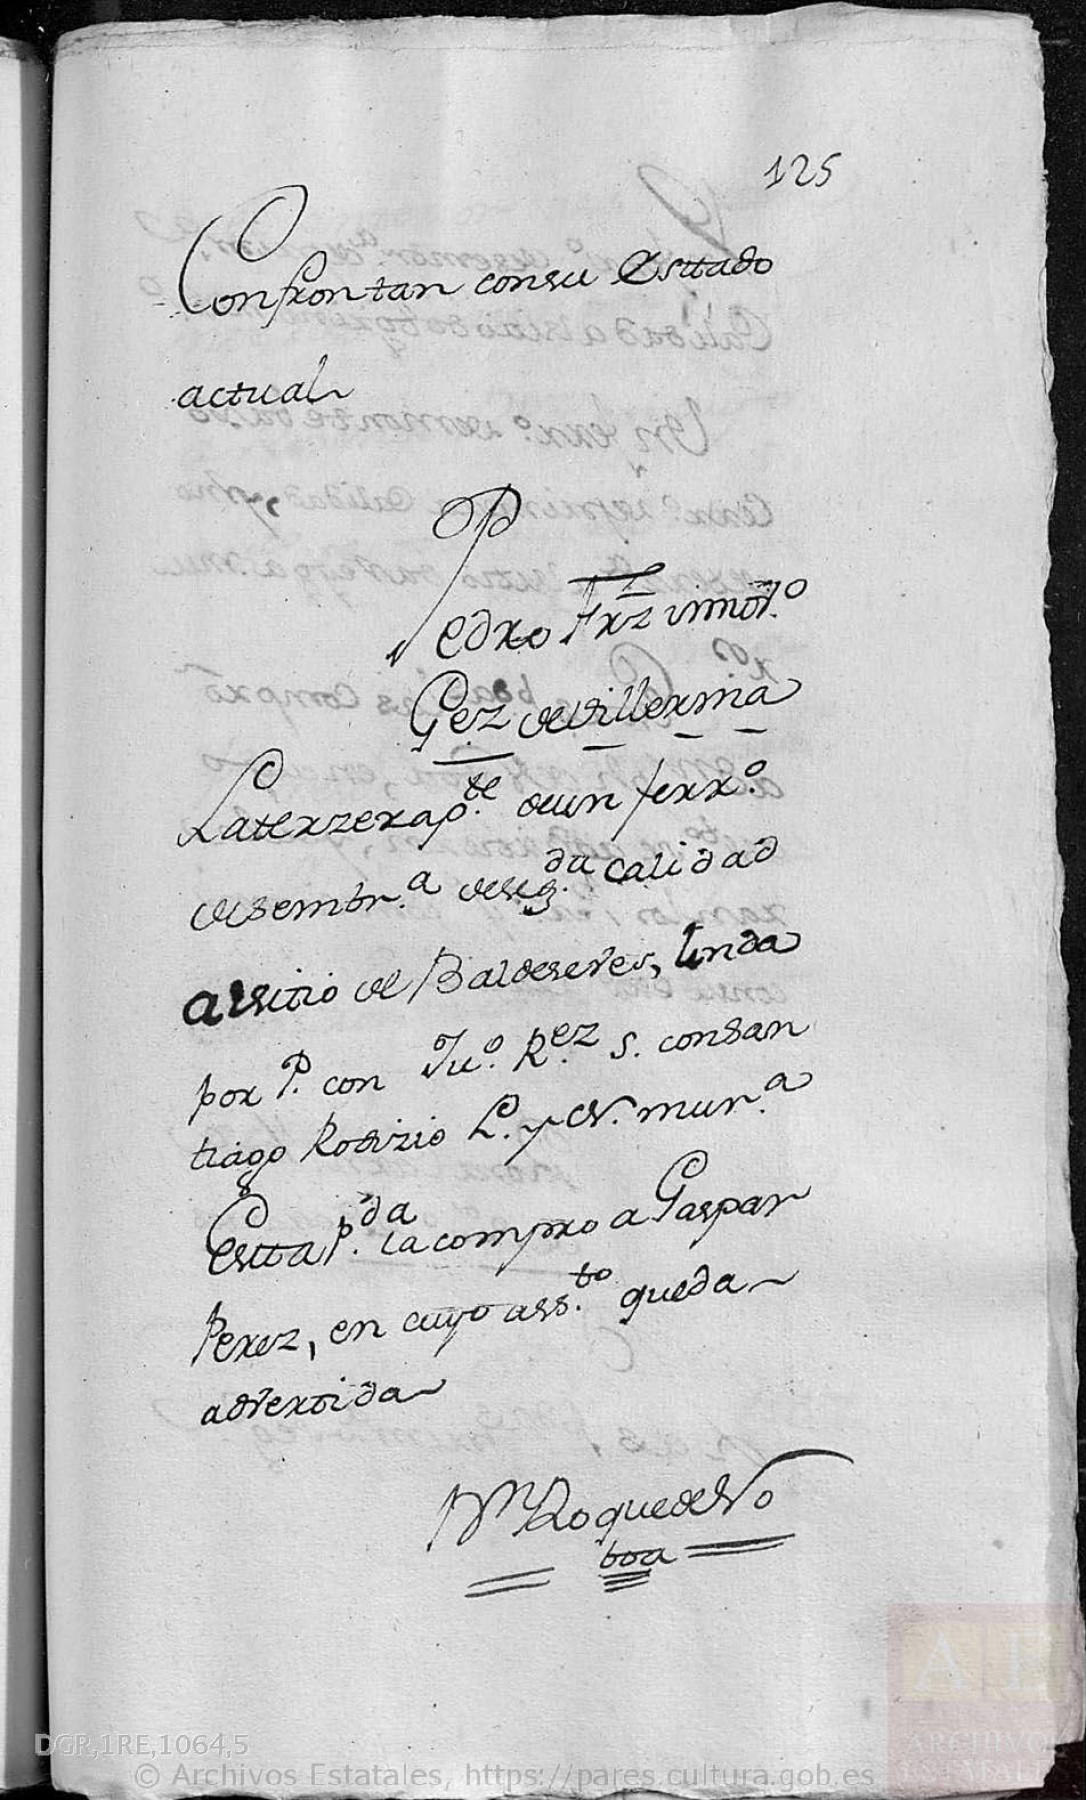 125
Confrontan consu Esttado
actual
Pedro Frz vimdr.o
Gez deVillerma
Laterzera p.te deun ferr.o
desembr.a deseg.da calidad
alsitio de Baldeseves, linda
por P. con Ju.o R.ez S. consan
tiago Rodrizio L. y N. mur.a
Estta P.da la compro a Gaspar
Perez, en cuyo ass.to queda
advertida
Roque de No
boa
DGR,1RE,1064,5
© Archivos Estatales, https://pares.cultura.gob.es
AE
ARCHIVOS
ESTATALES